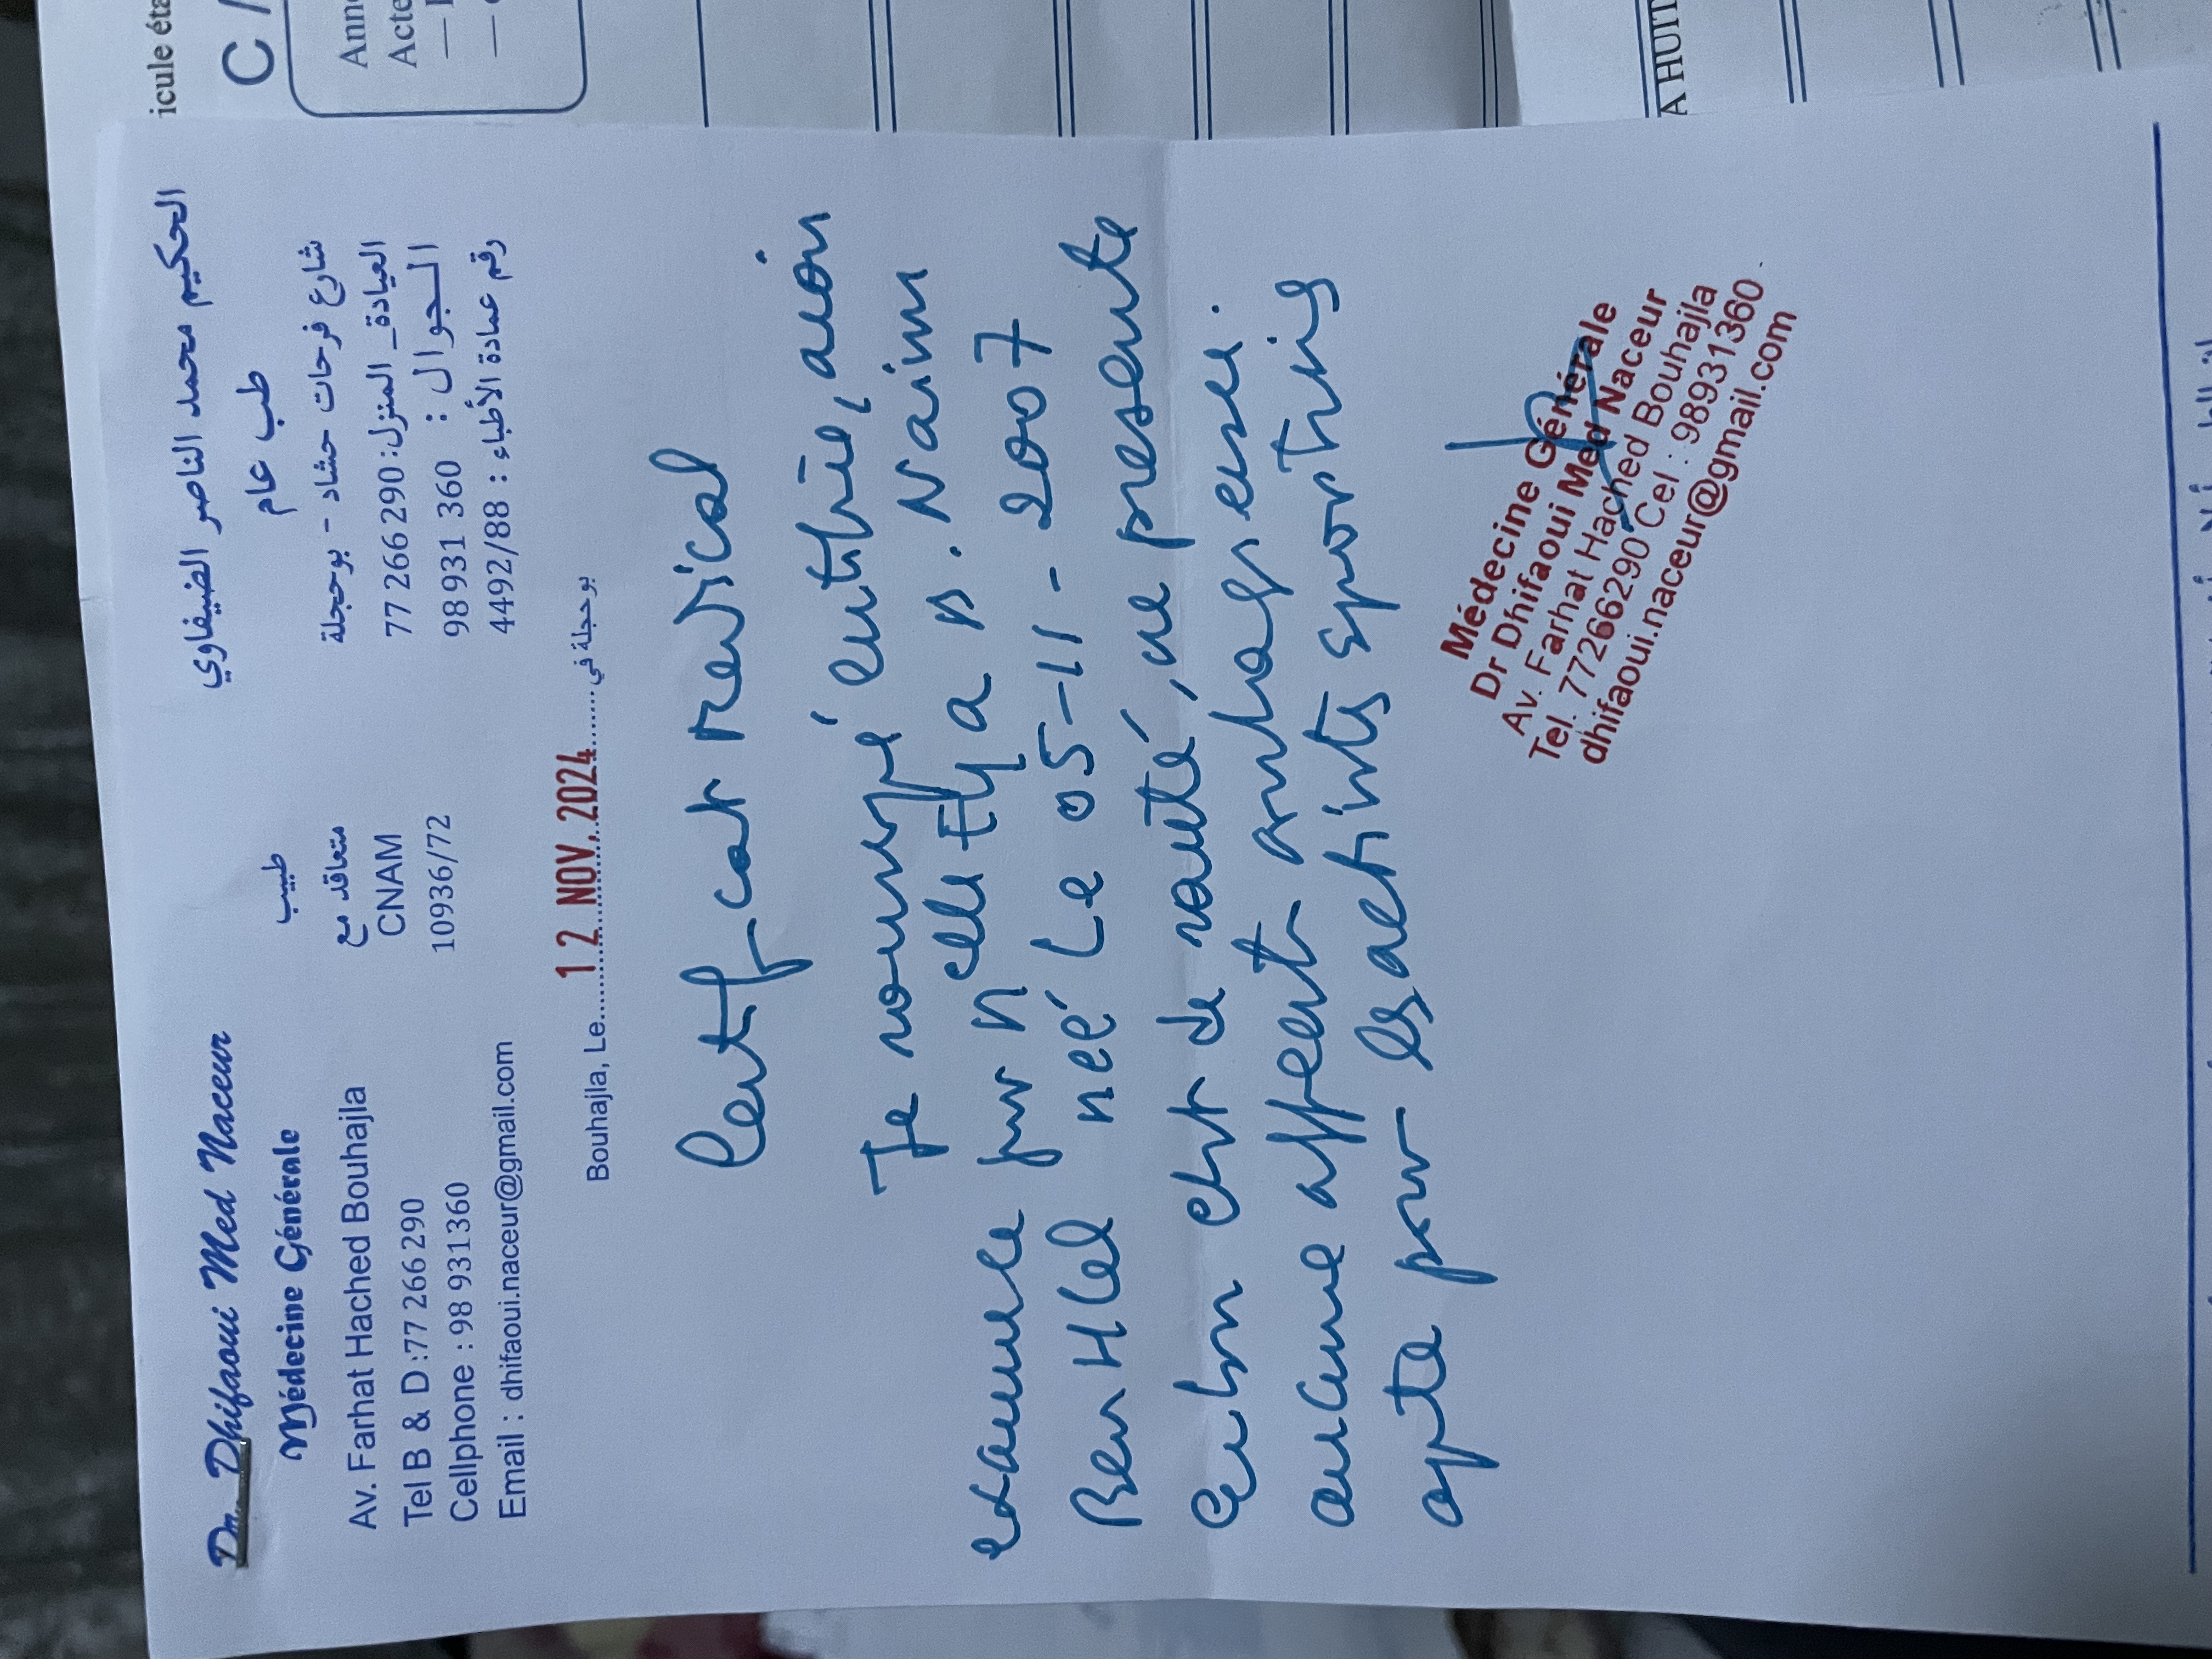 Dr. Dhifaoui Med Naceur
Médecine Générale
Av. Farhat Hached Bouhajla
Tel B & D :77 266 290
Cellphone : 98 931360
Email : dhifaoui.naceur@gmail.com
طبيب
متعاقد مع
CNAM
10936/72
الحكيم محمد الناصر الضيفاوي
طب عام
شارع فرحات حشاد - بوحجلة
العيادة_المنزل: 77 266 290
الجوال : 98 931 360
رقم عمادة الأطباء : 4492/88
Bouhajla, Le 12 NOV. 2024 بوحجلة في
Certificat medical
Je soussigné certifie, avoir
examiné ce jour Melle Eya B. Naim
Ben Hled née Le 05-11-2007
en bon état de santé, ne presente
aucune affection contagieuse.
apte pour les activités sportives
Médecine Générale
Dr Dhifaoui Med Naceur
Av. Farhat Hached Bouhajla
Tel. 77266290 Cel : 98931360
dhifaoui.naceur@gmail.com
icule éta
C
Anné
Acte
A HUIT